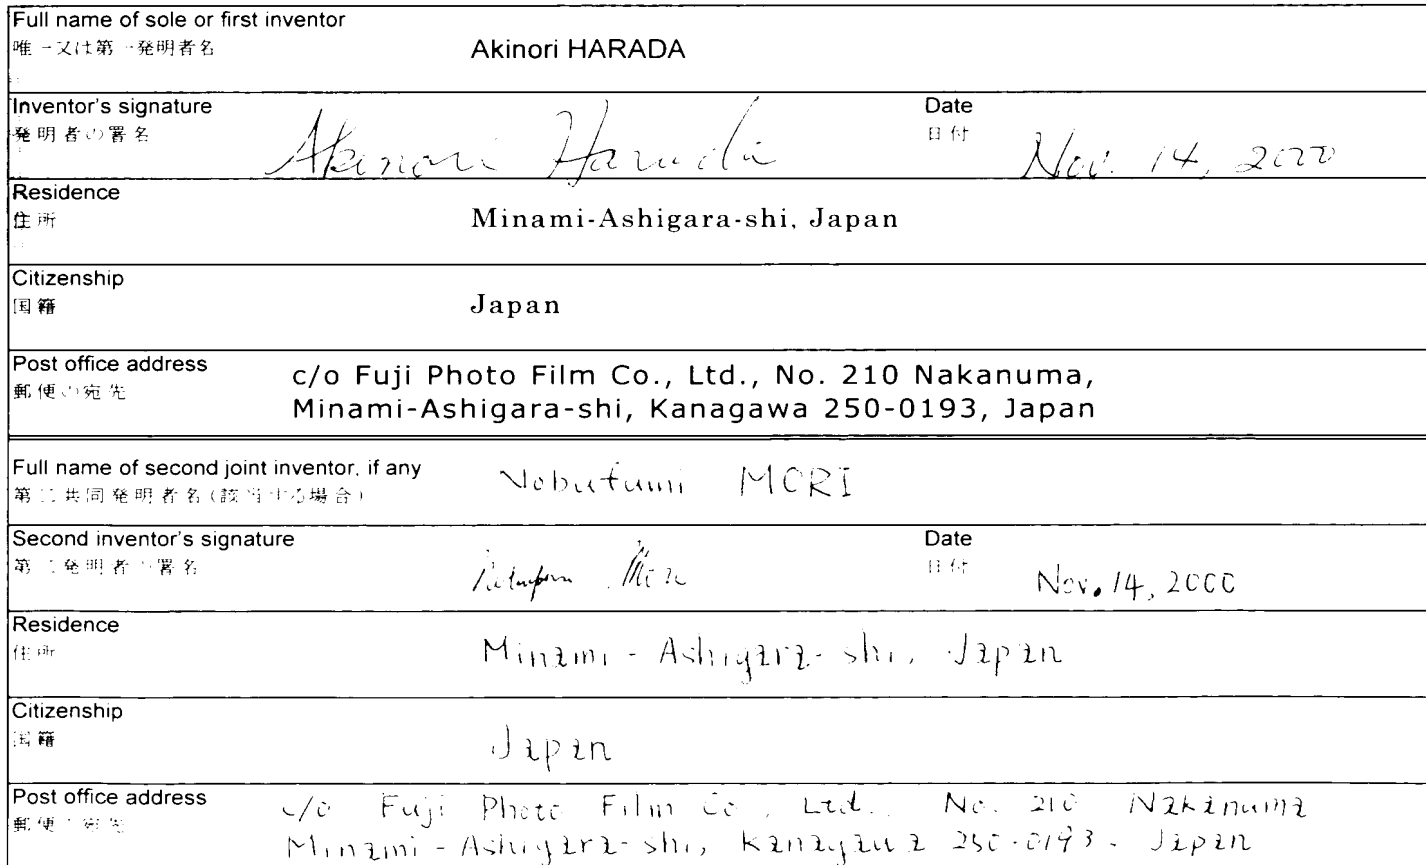 Full name of sole or first inventor
唯一又は第一発明者名
Akinori HARADA
Inventor's signature
発明者の署名
Akinori Harada
Date
日付
Nov. 14, 2000
Residence
住所
Minami-Ashigara-shi, Japan
Citizenship
国籍
Japan
Post office address
郵便の宛先
c/o Fuji Photo Film Co., Ltd., No. 210 Nakanuma,
Minami-Ashigara-shi, Kanagawa 250-0193, Japan
Full name of second joint inventor, if any
第二共同発明者名(該当する場合)
Nobufumi MORI
Second inventor's signature
第二発明者の署名
Mori
Date
日付
Nov. 14, 2000
Residence
住所
Minami-Ashigara-shi, Japan
Citizenship
国籍
Japan
Post office address
郵便の宛先
c/o Fuji Photo Film Co., Ltd., No. 210 Nakanuma
Minami-Ashigara-shi, Kanagawa 250-0193, Japan